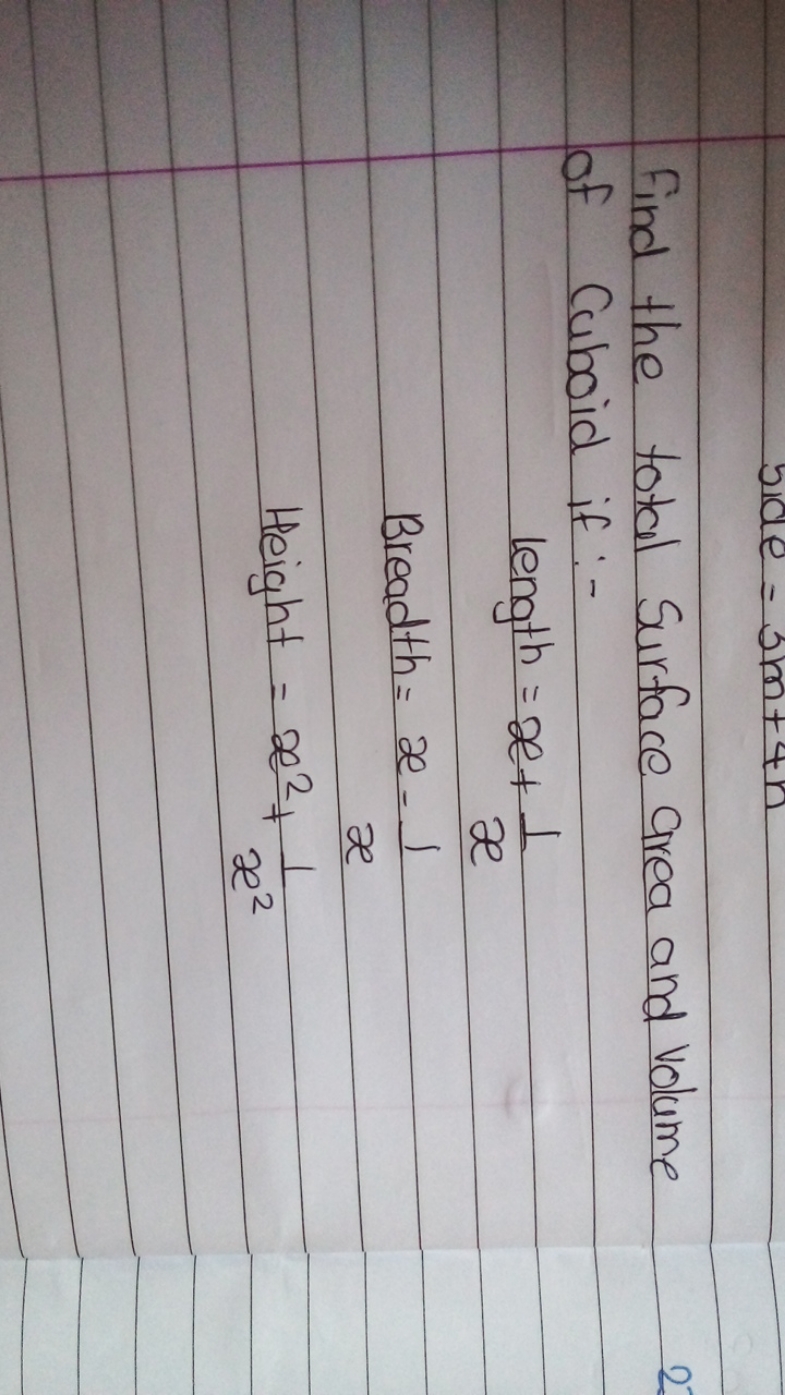 Side = 3m+4n
Find the total Surface area and Volume
of Cuboid if :-
length = x + 1/x
Breadth = x - 1/x
Height = x² + 1/x²